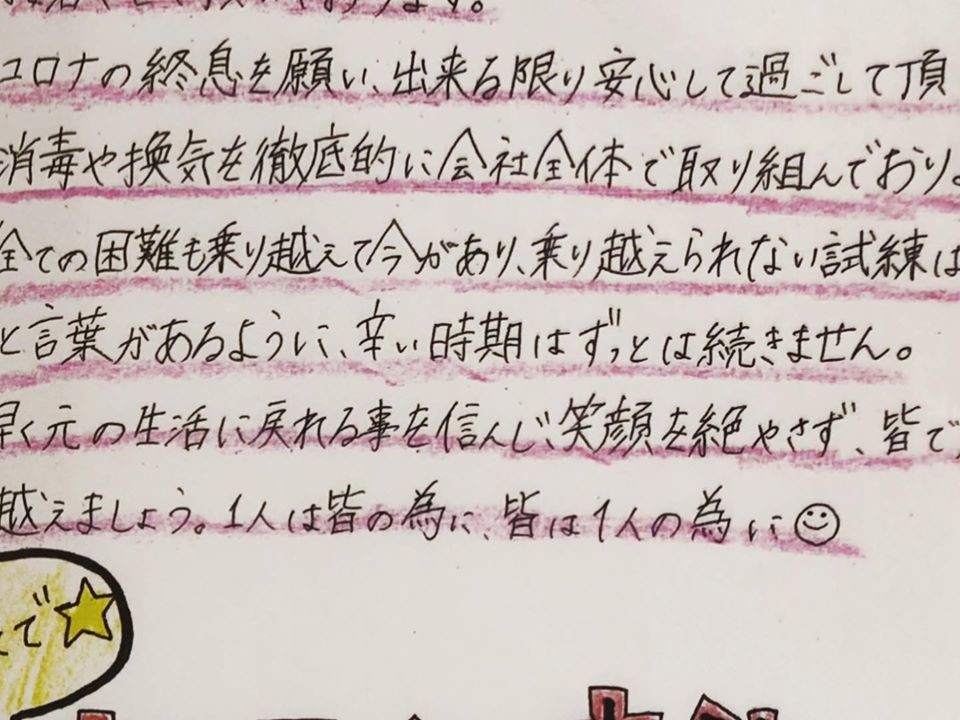 コロナの終息を願い、出来る限り安心して過ごして頂
消毒や換気を徹底的に会社全体で取り組んでおり
全ての困難も乗り越えて今があり、乗り越えられない試練は
と言葉があるように、辛い時期はずっとは続きません。
早く元の生活に戻れる事を信んじ、笑顔を絶やさず、皆で
越えましょう。1人は皆の為に、皆は1人の為に